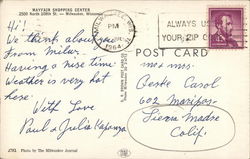 MAYFAIR SHOPPING CENTER
2500 North 108th St. — Milwaukee, Wisconsin
PM
1964
ALWAYS U
YOUR ZIP C
POST CARD
Hi!
We think about you
from Milw.
Having a nice time
Weather is very hot
here.
With Love
Paul & Julia
Mr & Mrs.
Carol
602 Mariposa
Sierra Madre
Calif.
Photo by The Milwaukee Journal